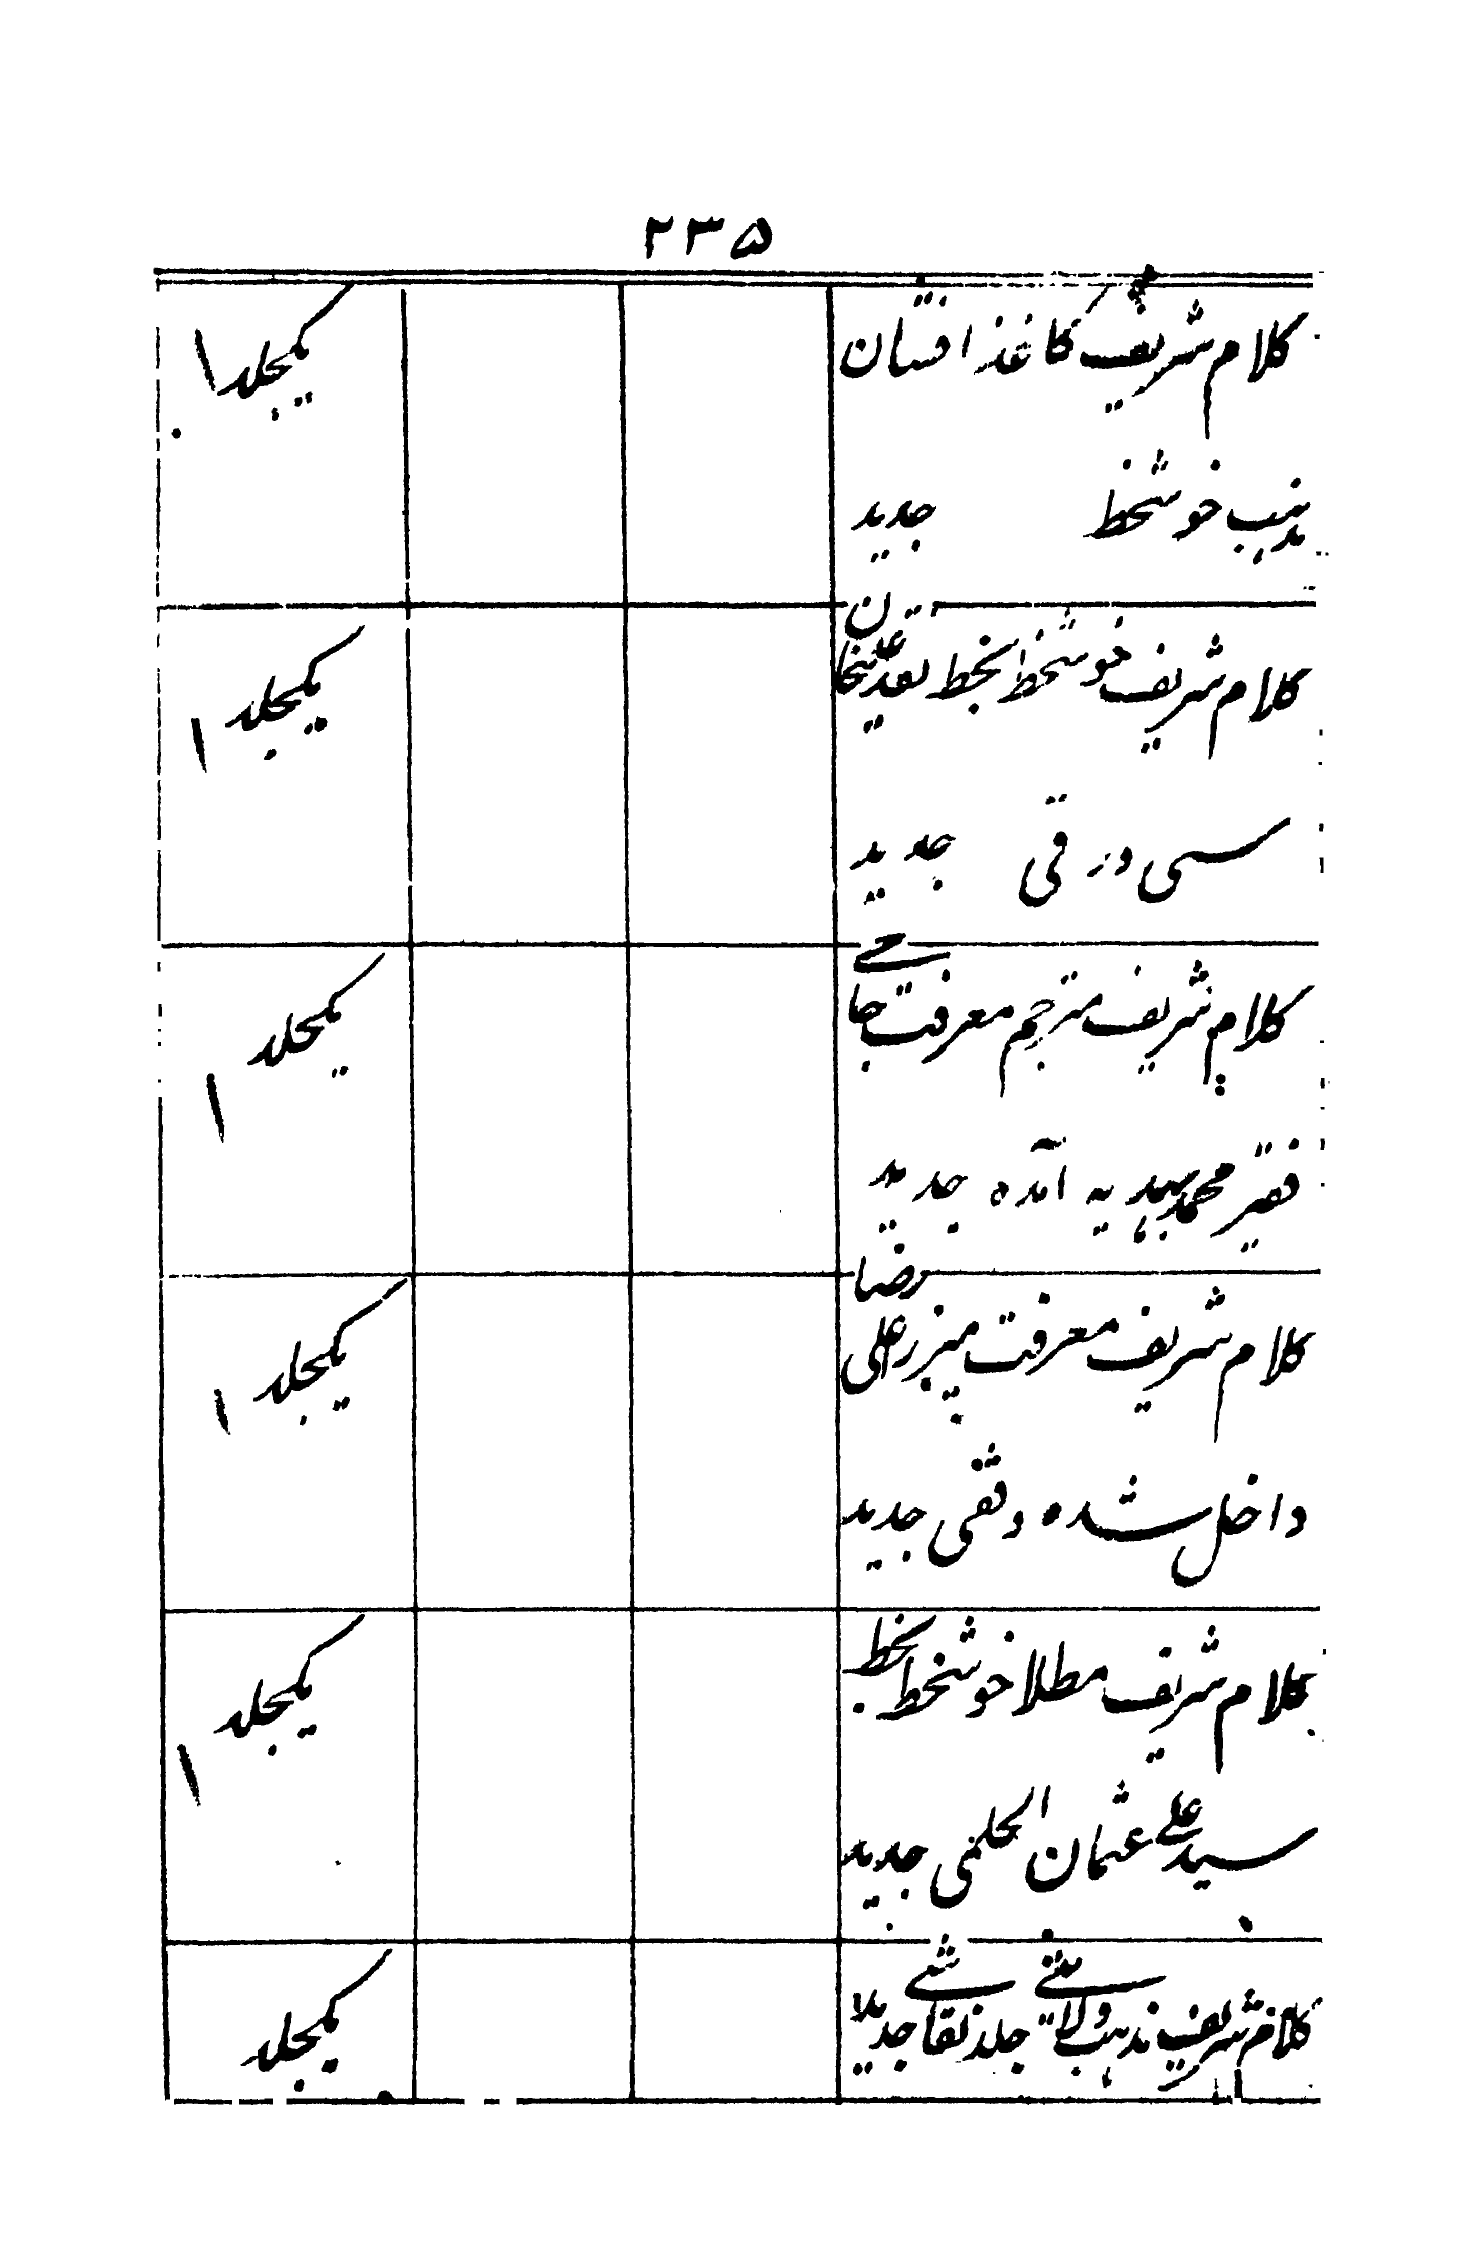 ۲۳۵
کلام شریف کاغذ افشان یکجلد ۱
مذہب خوشخط جدید
کلام شریف خوشخط بخط
سی ورقی جدید یکجلد ۱
کلام شریف مترجم معرفت حاجے
فقیر محمد بہدیہ آمدہ جدید یکجلد ۱
کلام شریف معرفت میرزا علی رضا
داخل شدہ وقفی جدید یکجلد ۱
کلام شریف مطلا خوشخط بخط
سید علے عثمان الحلمی جدید یکجلد ۱
کلام شریف مذہب ولایتے جلد نقاشے جدید یکجلد